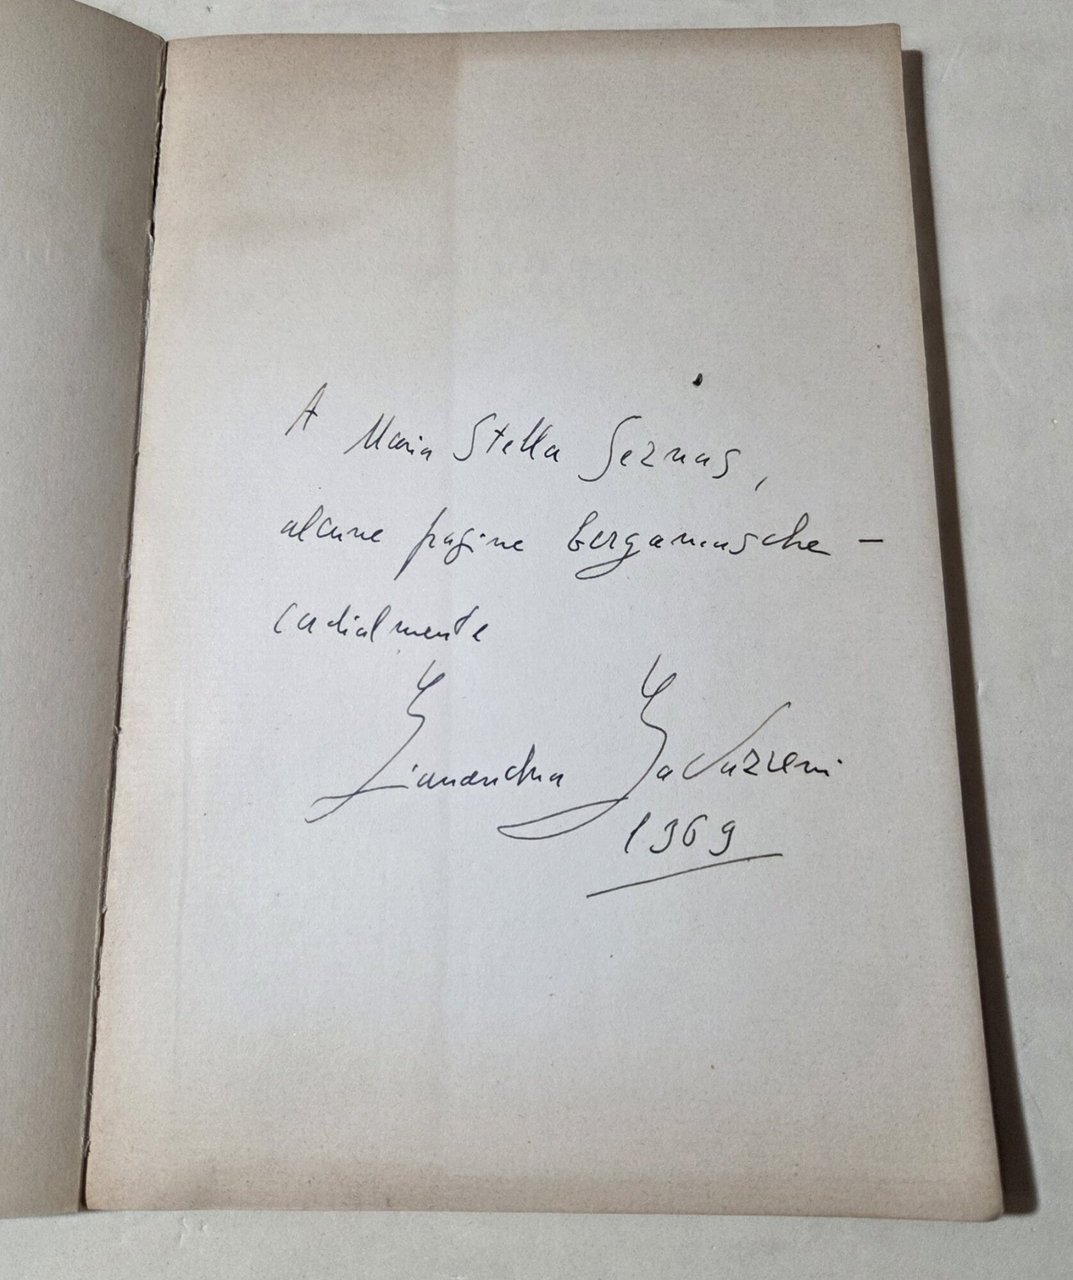 A Maria Stella Seznas,
alcune pagine bergamasche —
cordialmente
Gianandrea Gavazzeni
1969